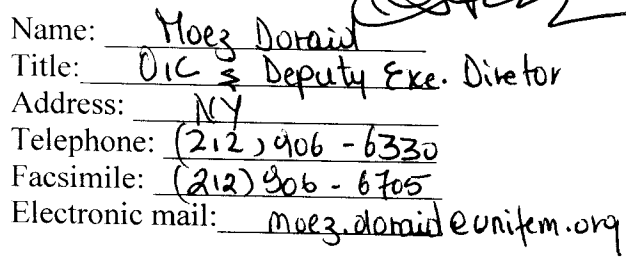 Name: Moez Doraid
Title: OIC & Deputy Exe. Diretor
Address: NY
Telephone: (212) 906 - 6330
Facsimile: (212) 906 - 6705
Electronic mail: moez.doraid@unifem.org